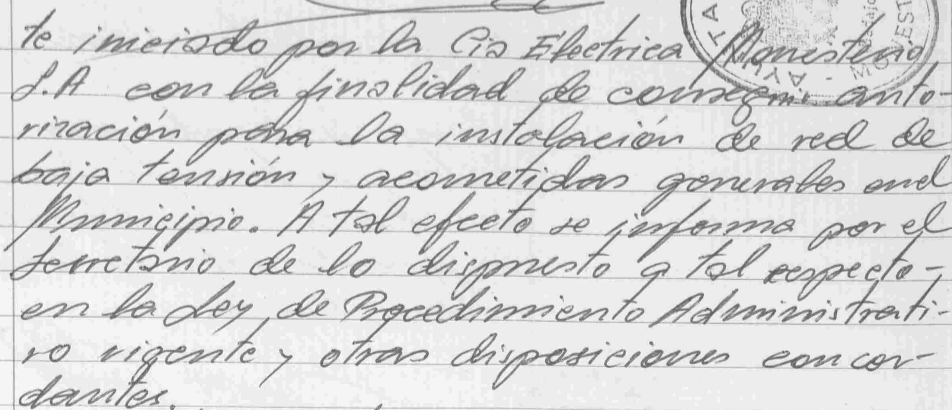 te iniciado por la Cia Electrica Monesterio
S.A con la finalidad de conseguir auto-
rización para la instalación de red de
baja tensión y acometidas generales en el
Municipio. A tal efecto se informa por el
Secretario de lo dispuesto a tal respecto-
en la Ley de Procedimiento Administrati-
vo vigente y otras disposiciones concor-
dantes.